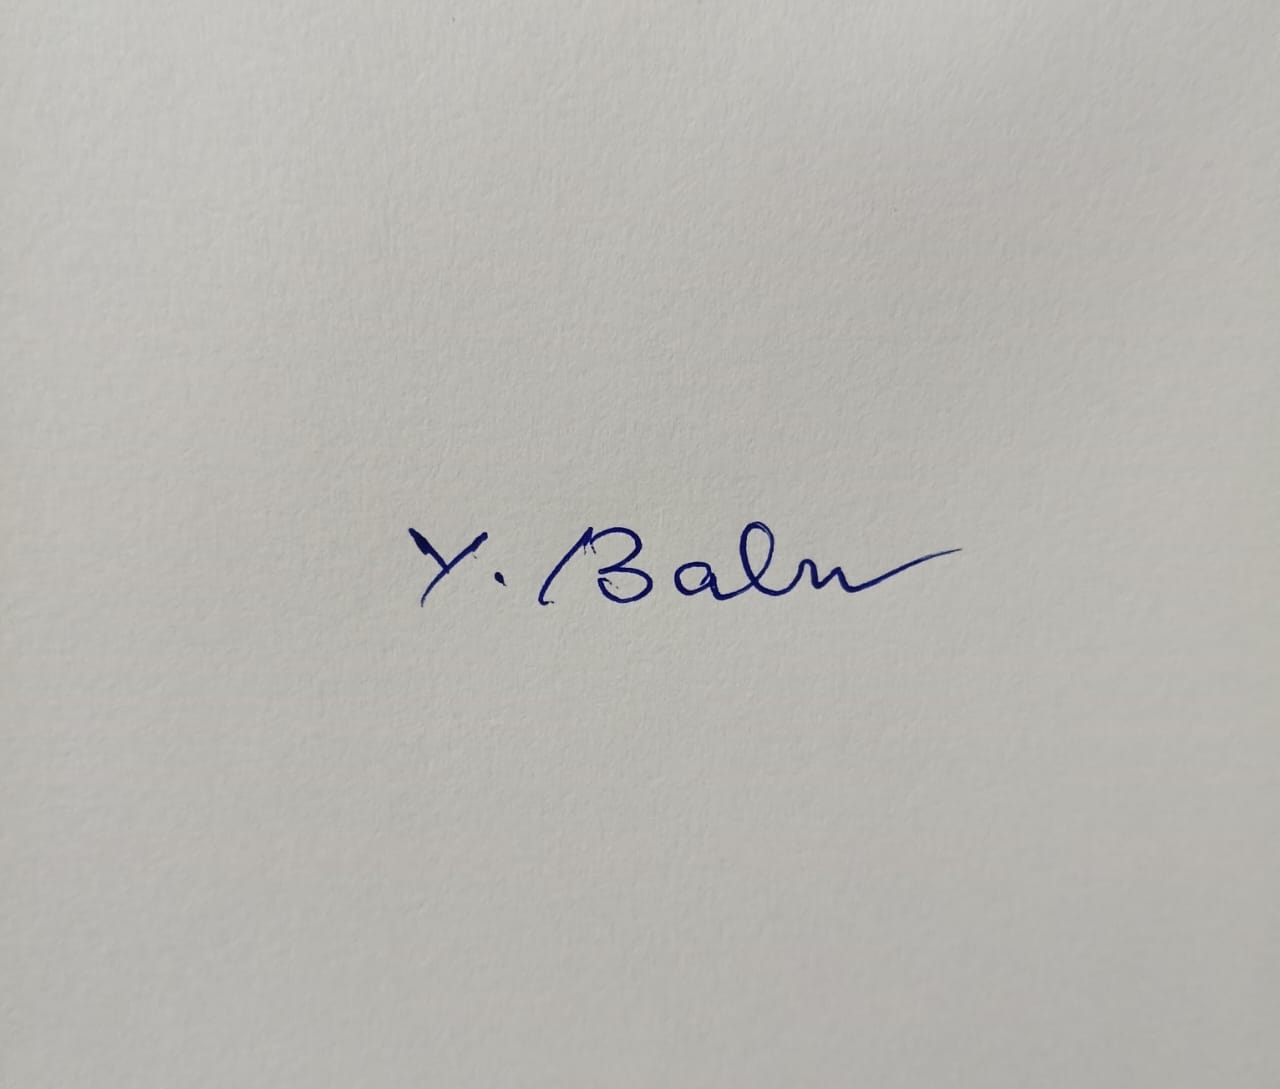 Y. Balu